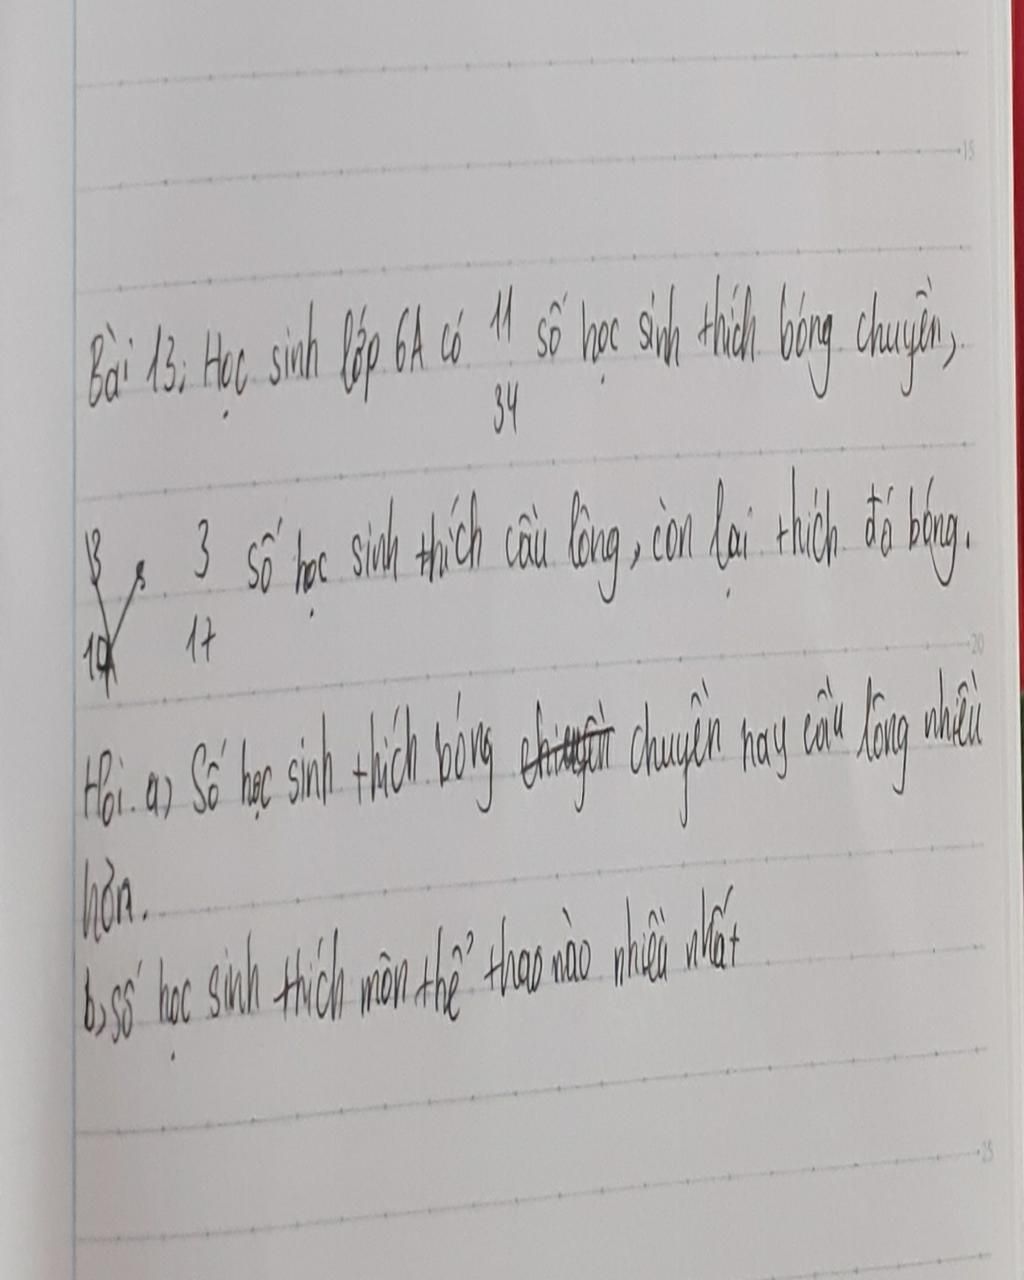 15
Bài 13: Học sinh lớp 6A có 11 số học sinh thích bóng chuyền,
34
3 số học sinh thích cầu lông, còn lại thích đá bóng.
17
20
Hỏi. a) Số học sinh thích bóng chuyền chuyền hay cầu lông nhiều
hơn.
b, số học sinh thích môn thể thao nào nhiều nhất
25